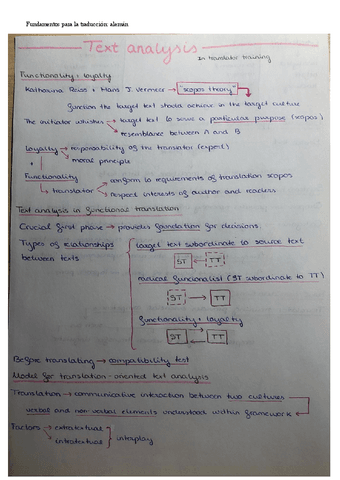 Fundamentos para la traducción: alemán
Text analysis
In translator training
Functionality + loyalty
Katharina Reiss + Hans J. Vermeer → "scopos theory"
function the target text should achieve in the target culture
The initiator whishes → target text to serve a particular purpose (scopos)
resemblance between A and B
Loyalty → responsability of the translator (expert)
+ → moral principle
Functionality
translator → conform to requirements of translation scopos
respect interests of author and readers
Text analysis in functional translation
Crucial first phase → provides foundation for decisions
Types of relationships
between texts
target text subordinate to source text
ST ← TT
radical funcionalist (ST subordinate to TT)
ST → TT
functionality + loyalty
ST TT
Before translating → compatibility test
Model for translation-oriented text analysis
Translation → communicative interaction between two cultures
verbal and non verbal elements understood within framework
Factors → extratextual
intratextual
interplay